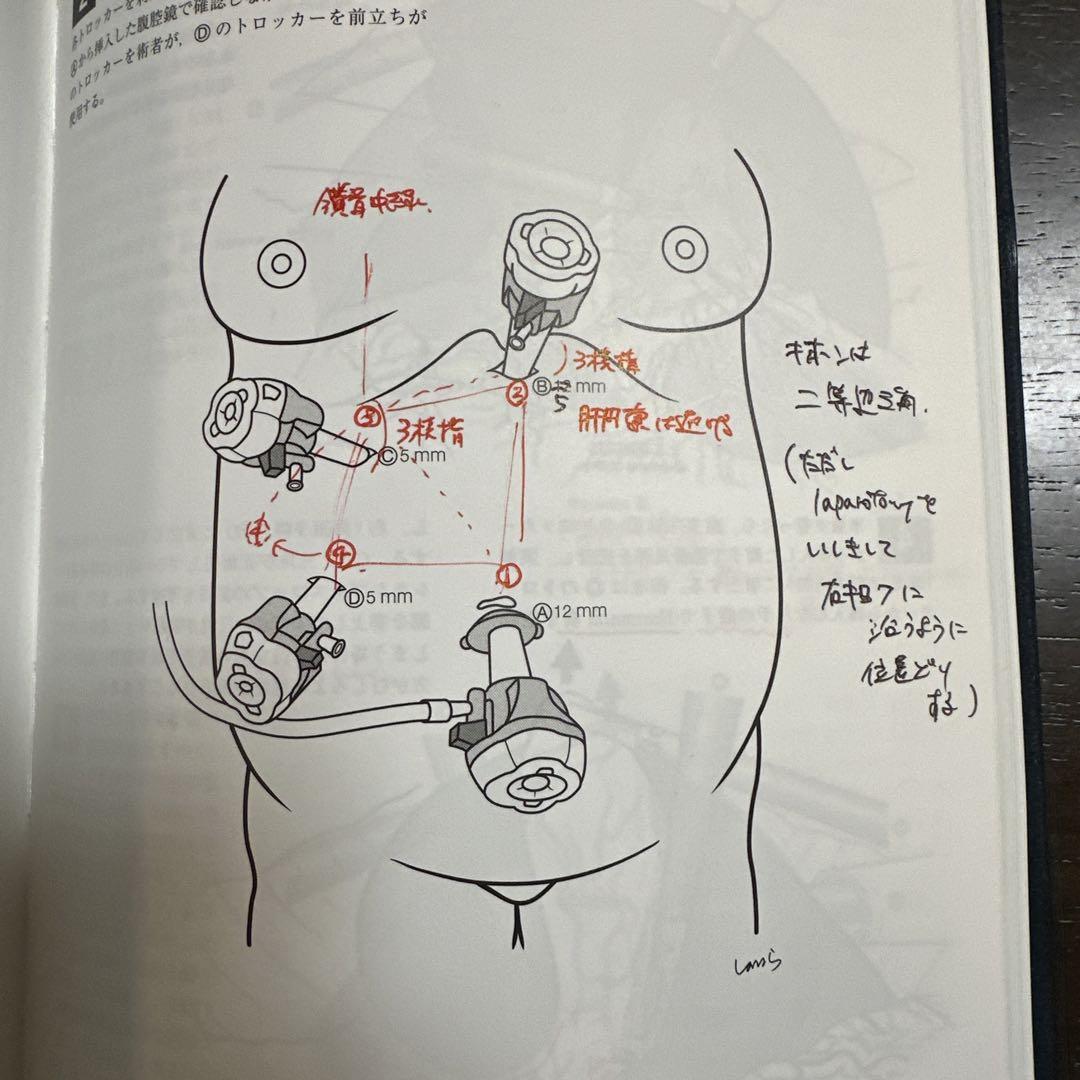 各トロッカーを
Ⓐから挿入した腹腔鏡で確認しな
のトロッカーを術者が，Ⓓのトロッカーを前立ちが
使用する。
鎖骨中線
3横指
②
Ⓑ12 mm
5
肝円索は避ける
③
3横指
Ⓒ5 mm
④
①
Ⓓ5 mm
Ⓐ12 mm
キホンは
二等辺三角.
(ただし
laparotomyを
いしきして
右キロクに
沿うように
位置どり
する)